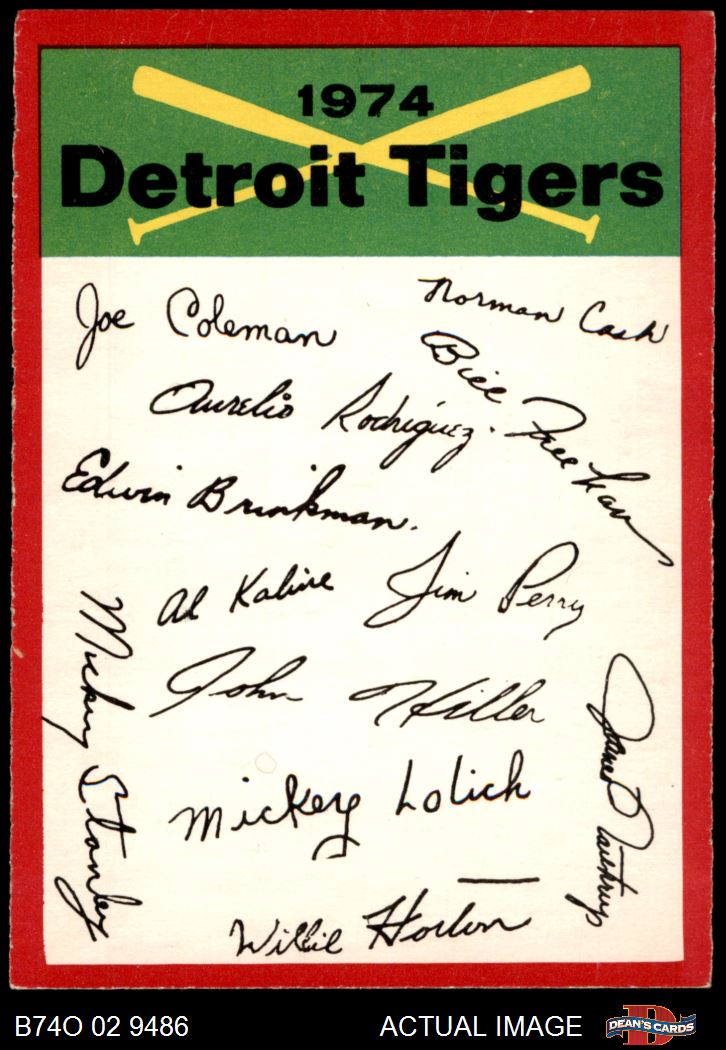 1974
Detroit Tigers
Joe Coleman
Norman Cash
Bill Freehan
Aurelio Rodriguez.
Edwin Brinkman.
Al Kaline
Jim Perry
Mickey Stanley
John Hiller
James Northrup
Mickey Lolich
Willie Horton
B74O 02 9486
ACTUAL IMAGE
D
DEAN'S CARDS